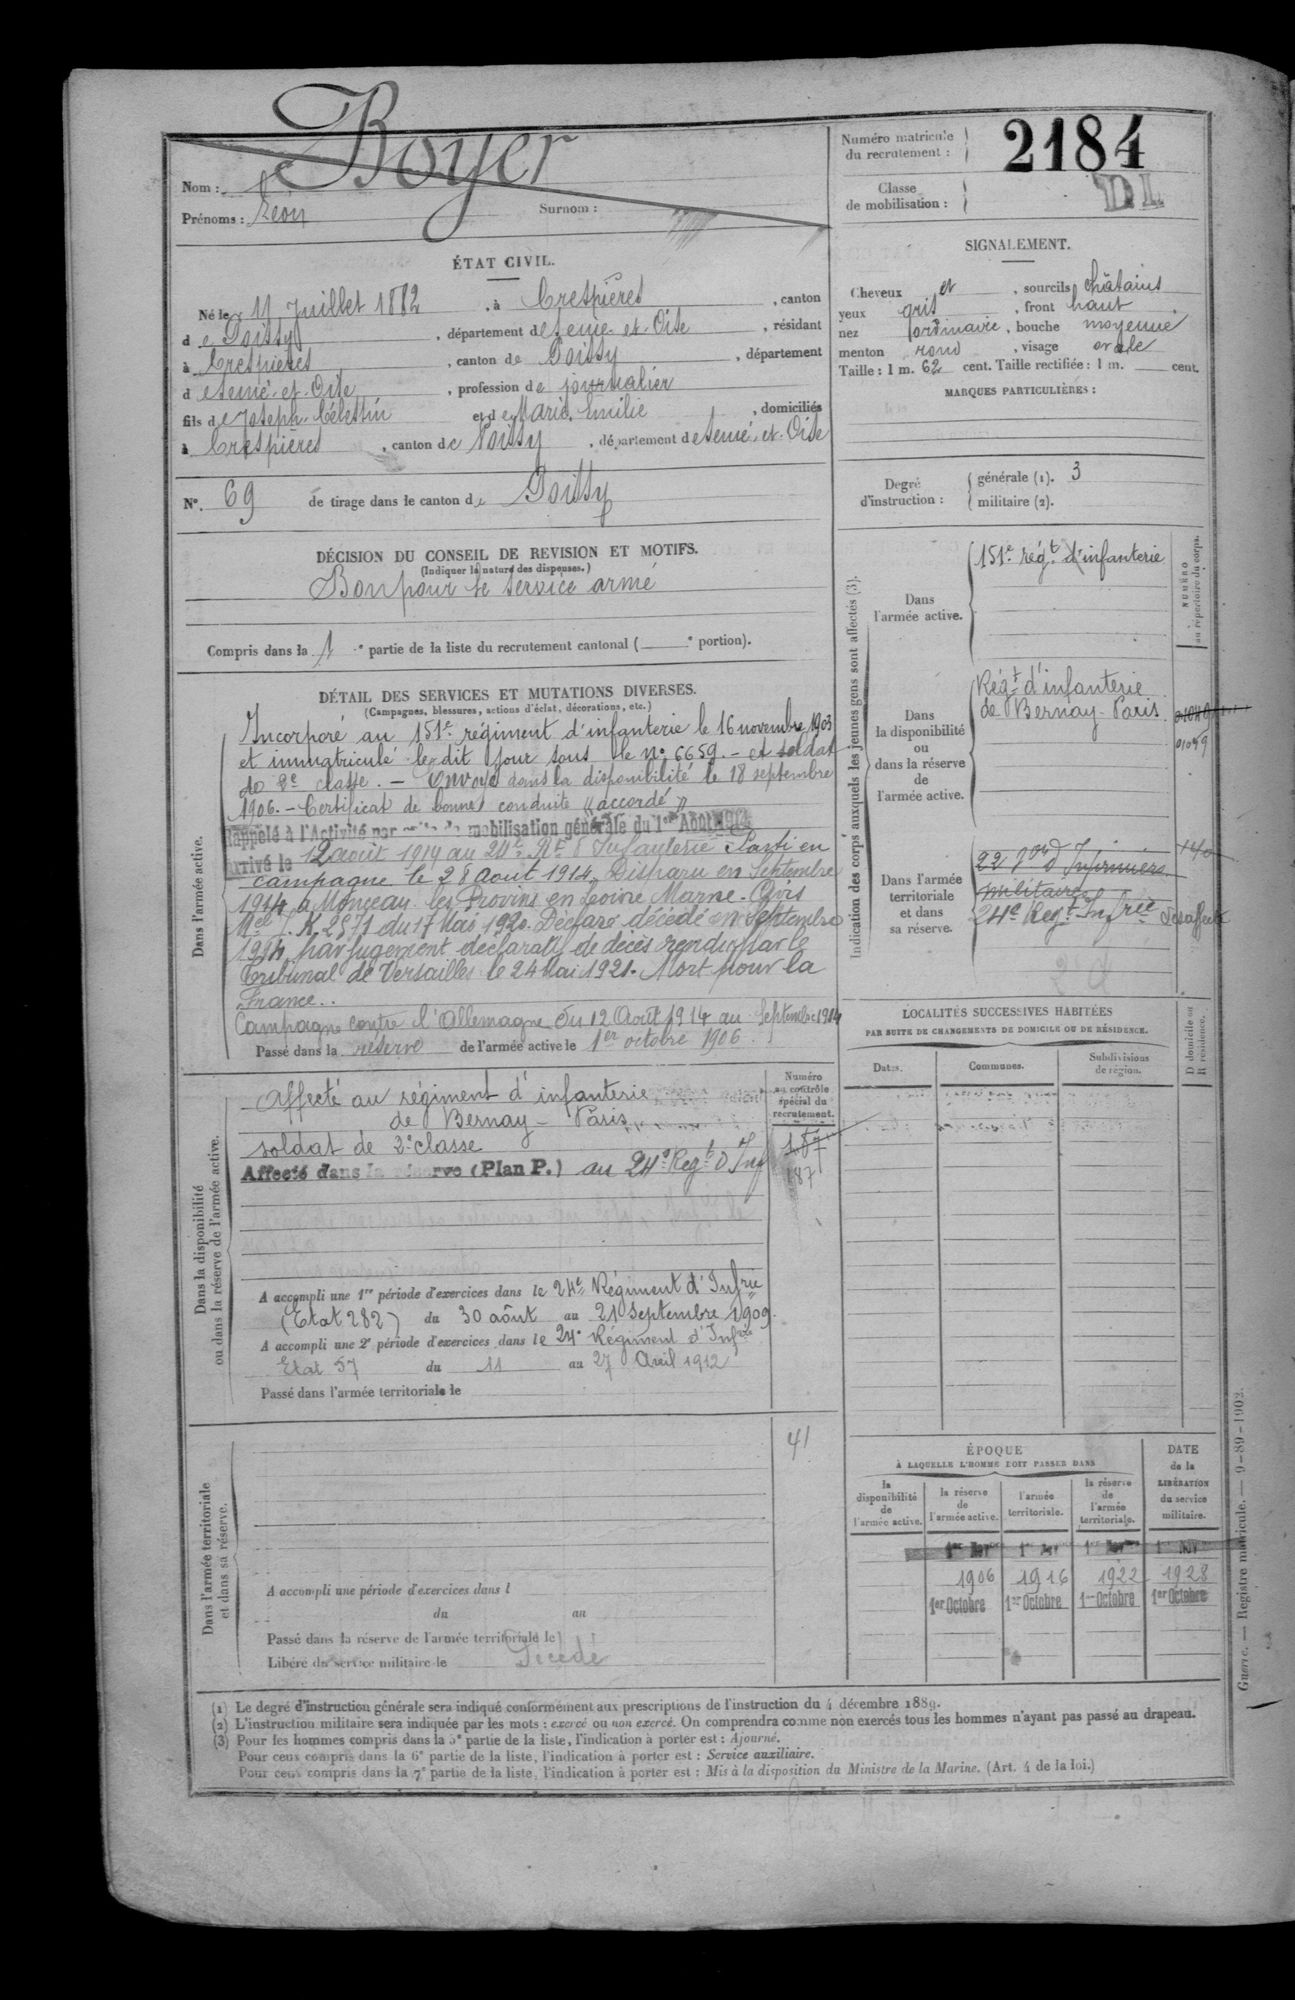 Boyer
Nom :
Prénoms : Léon Surnom :
Numéro matricule du recrutement : 2184
Classe de mobilisation : DL
ÉTAT CIVIL.
Né le 11 Juillet 1882, à Crespières, canton
de Poissy, département de Seine-et-Oise, résidant
à Crespières, canton de Poissy, département
de Seine-et-Oise, profession de journalier
fils de Joseph Célestin et de Marie Emilie, domiciliés
à Crespières, canton de Poissy, département de Seine-et-Oise
N° 69 de tirage dans le canton de Poissy
SIGNALEMENT.
Cheveux et, sourcils châtains
yeux gris, front haut
nez ordinaire, bouche moyenne
menton rond, visage ovale
Taille : 1 m. 62 cent. Taille rectifiée : 1 m. cent.
MARQUES PARTICULIÈRES :
Degré d'instruction : générale (1). 3
militaire (2).
DÉCISION DU CONSEIL DE REVISION ET MOTIFS.
(Indiquer la nature des dispenses.)
Bon pour le service armé
Compris dans la 1e partie de la liste du recrutement cantonal ( e portion).
DÉTAIL DES SERVICES ET MUTATIONS DIVERSES.
(Campagnes, blessures, actions d'éclat, décorations, etc.)
Dans l'armée active.
Incorporé au 151e régiment d'infanterie le 16 novembre 1903
et immatriculé le dit jour sous le n° 6659. – et soldat
de 2e classe. – Envoyé dans la disponibilité le 18 septembre
1906. – Certificat de bonne conduite "accordé"
Rappelé à l'Activité par suite de mobilisation générale du 1er Août 1914
Arrivé le 12 août 1914 au 24e Rt d'Infanterie Parti en
campagne le 28 août 1914. Disparu en Septembre
1914 à Monceau les Provins en Loire Marne. Avis
Mel K. 2571 du 17 Mai 1920. Déclaré décédé en Septembre
1914 par jugement déclaratif de décès rendu par le
Tribunal de Versailles le 24 Mai 1921. Mort pour la
France.
Campagne contre l'Allemagne du 12 Août 1914 au Septembre 1914
Passé dans la réserve de l'armée active le 1er octobre 1906.
Indication des corps auxquels les jeunes gens sont affectés (3).
NUMÉRO au répertoire du corps.
Dans l'armée active.
151e régt d'infanterie
Dans la disponibilité ou dans la réserve de l'armée active.
Régt d'infanterie
de Bernay-Paris
01059
Dans l'armée territoriale et dans sa réserve.
22 son d'Infirmiers
militaires
24e Regt Infrie Désaffecté
LOCALITÉS SUCCESSIVES HABITÉES
PAR SUITE DE CHANGEMENTS DE DOMICILE OU DE RÉSIDENCE.
Dates. Communes. Subdivisions de région. D domicile ou R résidence.
Dans la disponibilité ou dans la réserve de l'armée active.
Numéro au contrôle spécial du recrutement.
Affecté au régiment d'infanterie
de Bernay – Paris
soldat de 2e classe
Affecté dans la réserve (Plan P.) au 24e Regt d'Inf
187
187
A accompli une 1re période d'exercices dans le 24e Régiment d'Infrie
(Etat 282) du 30 août au 21 Septembre 1909.
A accompli une 2e période d'exercices dans le 24e Régiment d'Infrie
Etat 57 du 11 au 27 Avril 1912
Passé dans l'armée territoriale le
Dans l'armée territoriale et dans sa réserve.
41
A accompli une période d'exercices dans l
du au
Passé dans la réserve de l'armée territoriale le
Libéré du service militaire le Décédé
ÉPOQUE
À LAQUELLE L'HOMME DOIT PASSER DANS
la disponibilité de l'armée active. la réserve de l'armée active. l'armée territoriale. la réserve de l'armée territoriale.
DATE de la LIBÉRATION du service militaire.
1er Nov 1er Nov 1er Nov 1er Nov
1906 1916 1922 1928
1er Octobre 1er Octobre 1er Octobre 1er Octobre
(1) Le degré d'instruction générale sera indiqué conformément aux prescriptions de l'instruction du 4 décembre 1889.
(2) L'instruction militaire sera indiquée par les mots : exercé ou non exercé. On comprendra comme non exercés tous les hommes n'ayant pas passé au drapeau.
(3) Pour les hommes compris dans la 5e partie de la liste, l'indication à porter est : Ajourné.
Pour ceux compris dans la 6e partie de la liste, l'indication à porter est : Service auxiliaire.
Pour ceux compris dans la 7e partie de la liste, l'indication à porter est : Mis à la disposition du Ministre de la Marine. (Art. 4 de la loi.)
Guerre. — Registre matricule. — 9-89-1902.